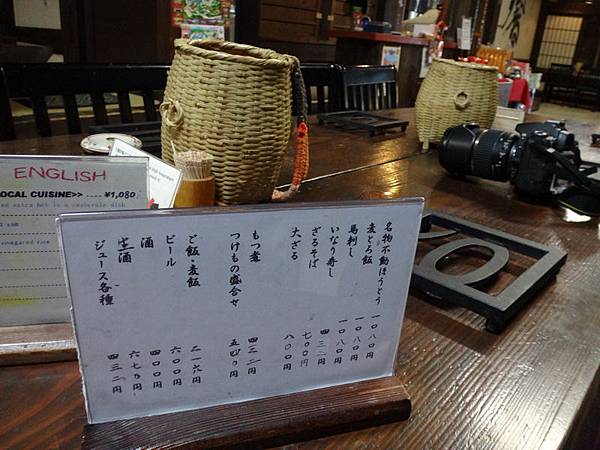 ENGLISH
LOCAL CUISINE>> ---- ¥1,080
extra hot in a casserole dish
vinegared rice
名物不動ほうとう 一〇八〇円
麦とろ飯 一〇八〇円
馬刺し 一〇八〇円
いなり寿し 四三二円
ざるそば 七〇〇円
大ざる 八〇〇円
もつ煮 四三二円
つけもの盛合せ 五四〇円
ご飯・麦飯 二一六円
ビール 六〇〇円
酒 四〇〇円
生酒 六七〇円
ジュース各種 四三二円